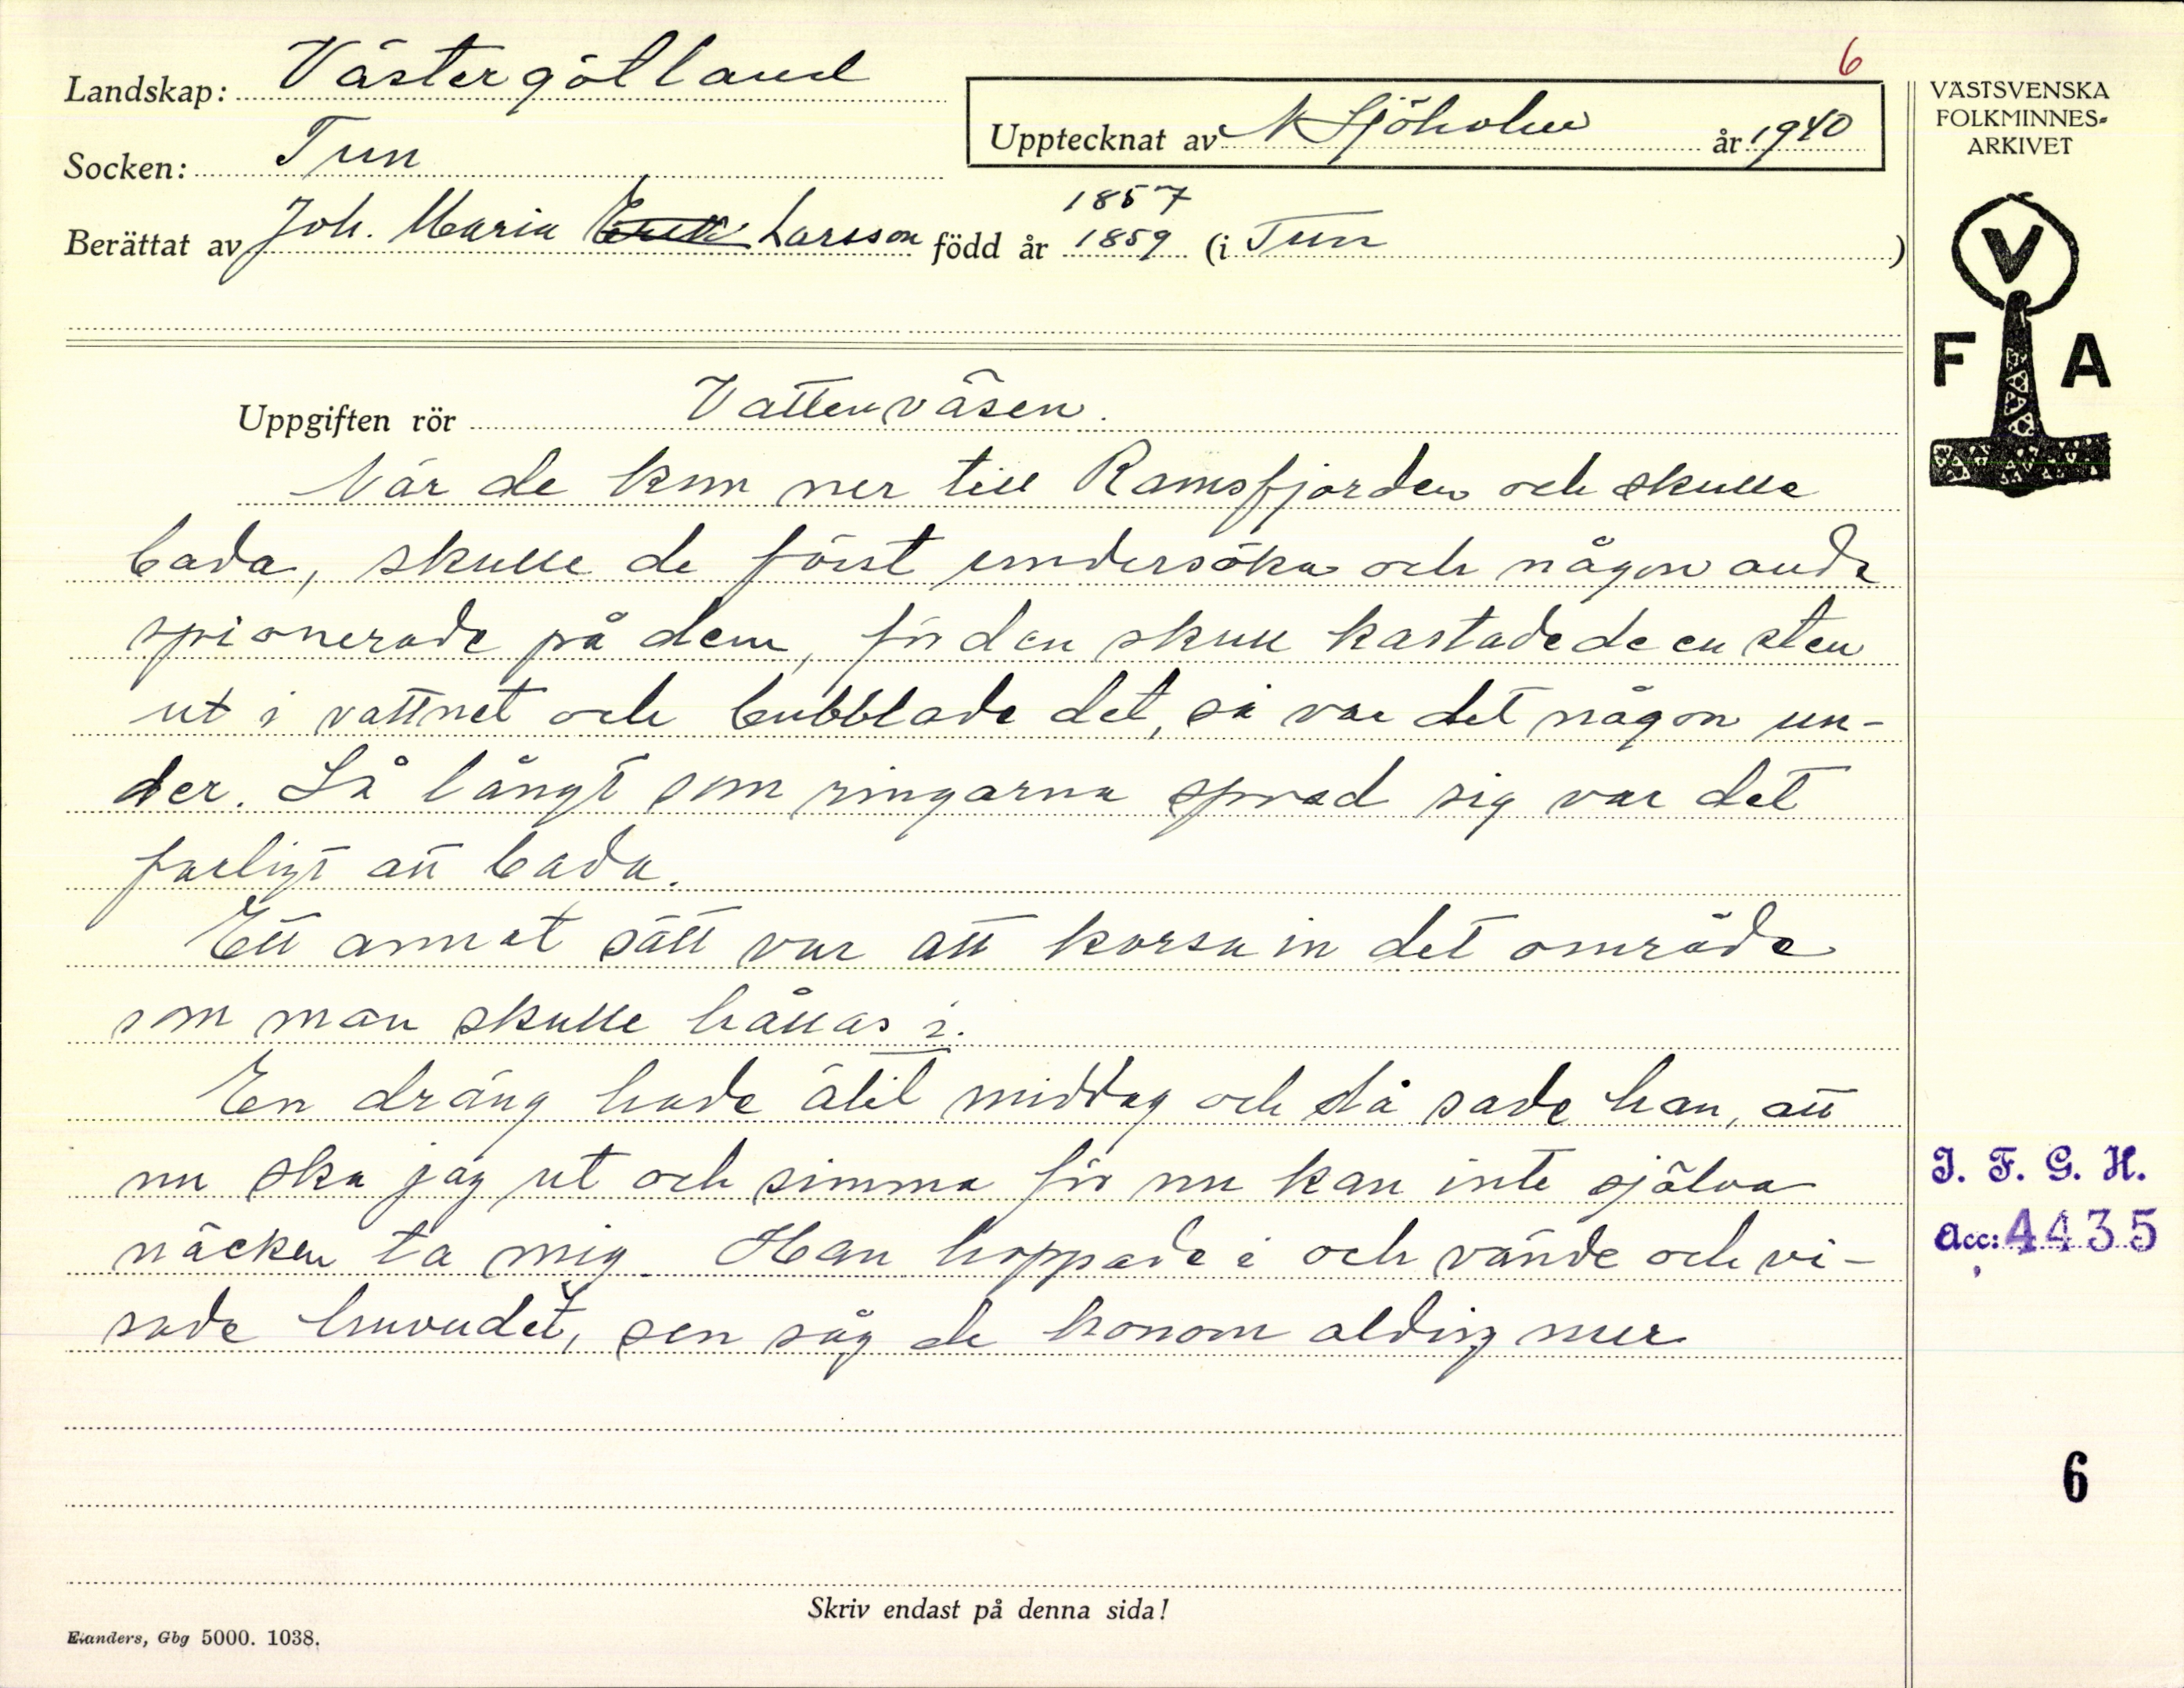 6
Landskap: Västergötland
Upptecknat av N Sjöholm år 1940
Socken: Tun
1857
Berättat av Joh. Maria Larsson född år 1859 (i Tun)
Uppgiften rör Vattenväsen.
När de kom ner till Ramsfjorden och skulle
bada, skulle de först undersöka och någon ande
spionerade på dem, för den skull kastade de en sten
ut i vattnet och bubblade det, så var det någon un-
der. Så långt som ringarna spred sig var det
farligt att bada.
Ett annat sätt var att korsa in det område
som man skulle hållas i.
En dräng hade ätit middag och då sade han, att
nu ska jag ut och simma för nu kan inte själva
näcken ta mig. Han hoppade i och vände och vi-
sade huvudet, sen såg de honom aldrig mer
Skriv endast på denna sida!
Elanders, Gbg 5000. 1038.
VÄSTSVENSKA
FOLKMINNES-
ARKIVET
V
F A
I. F. G. H.
Acc: 4435
6